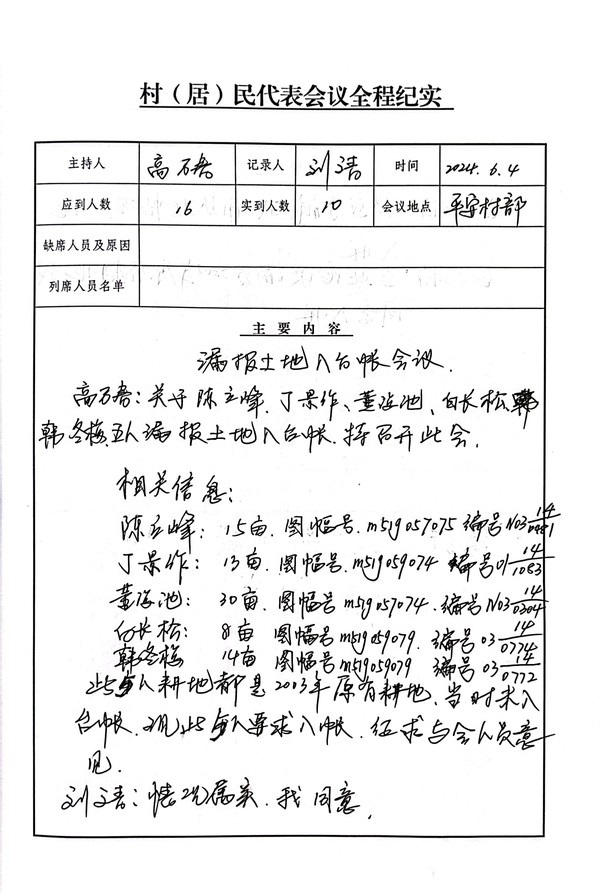 村（居）民代表会议全程纪实
主持人 高万春 记录人 刘文清 时间 2024.6.4
应到人数 16 实到人数 10 会议地点 平安村部
缺席人员及原因
列席人员名单
主要内容
漏报土地入台帐会议.
高万春：关于陈立峰、丁景作、董海池、白长松、
韩冬梅五人漏报土地入台帐.特召开此会.
相关信息：
陈立峰：15亩.图幅号.m51g057075编号N03 14/0481
丁景作：13亩.图幅号m51g059074 编号01 14/1083
董海池：30亩.图幅号m51g057074.编号N03 14/0304
白长松：8亩 图幅号m51g059079.编号03 14/0774
韩冬梅 14亩 图幅号m51g059079 编号03 14/0772
此5人耕地都是2003年原有耕地.当时未入
台帐.现此5人要求入帐.征求与会人员意
见.
刘文清：情况属实.我同意.